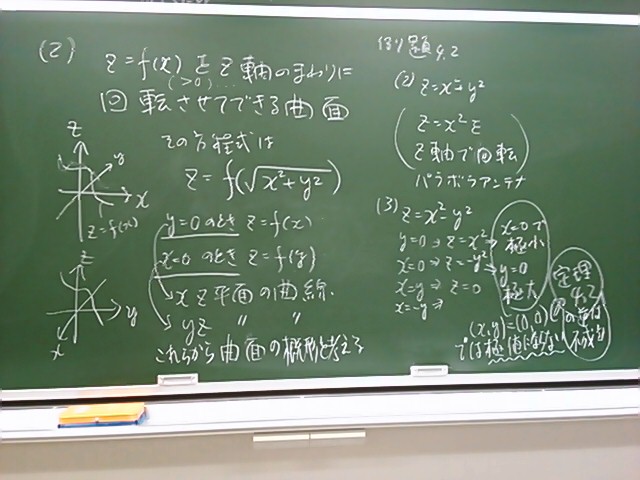 (2) z=f(x) を z軸のまわりに
(>0)...
回転させてできる曲面
その方程式は
z=f(√x²+y²)
y=0のとき z=f(x)
x=0のとき z=f(y)
xz平面の曲線
yz 〃 〃
これらから曲面の概形を考える
z
y
x
z=f(x)
z
y
x
例題4.2
(2) z=x²+y²
z=x²を
z軸で回転
パラボラアンテナ
(3) z=x²-y²
y=0→z=x²→
x=0→z=-y²→
x=y→z=0
x=-y→
x=0で
極小
y=0
極大
(x,y)=(0,0)
では極値にならない
定理
4.2
の逆は
不成立